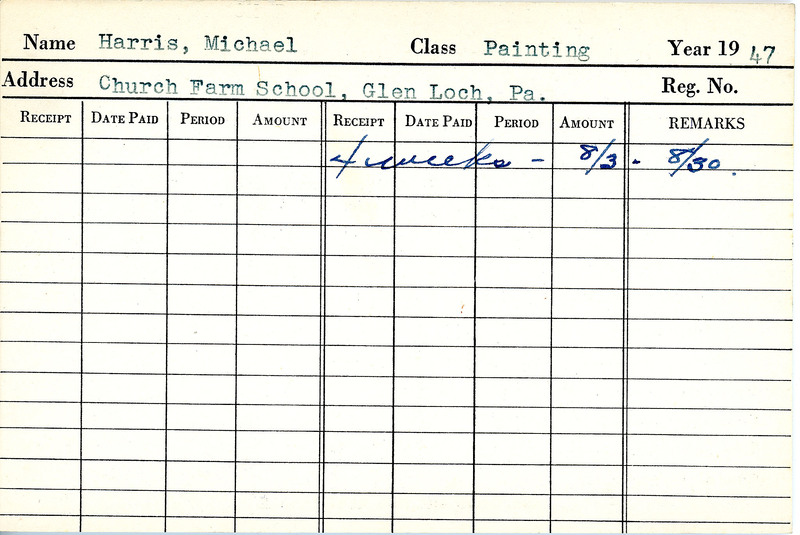 Name Harris, Michael Class Painting Year 19 47
Address Church Farm School, Glen Loch, Pa. Reg. No.
RECEIPT DATE PAID PERIOD AMOUNT RECEIPT DATE PAID PERIOD AMOUNT REMARKS
4 weeks - 8/3 - 8/30.